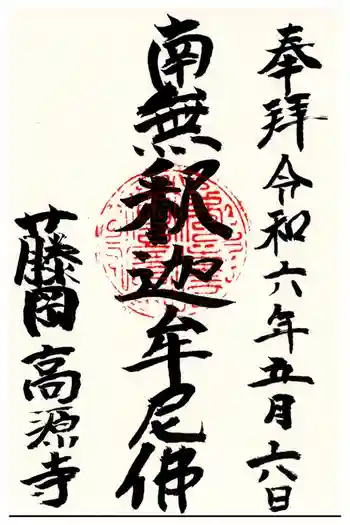 奉拝 令和六年五月十六日
南無釈迦牟尼佛
藤岡 高源寺